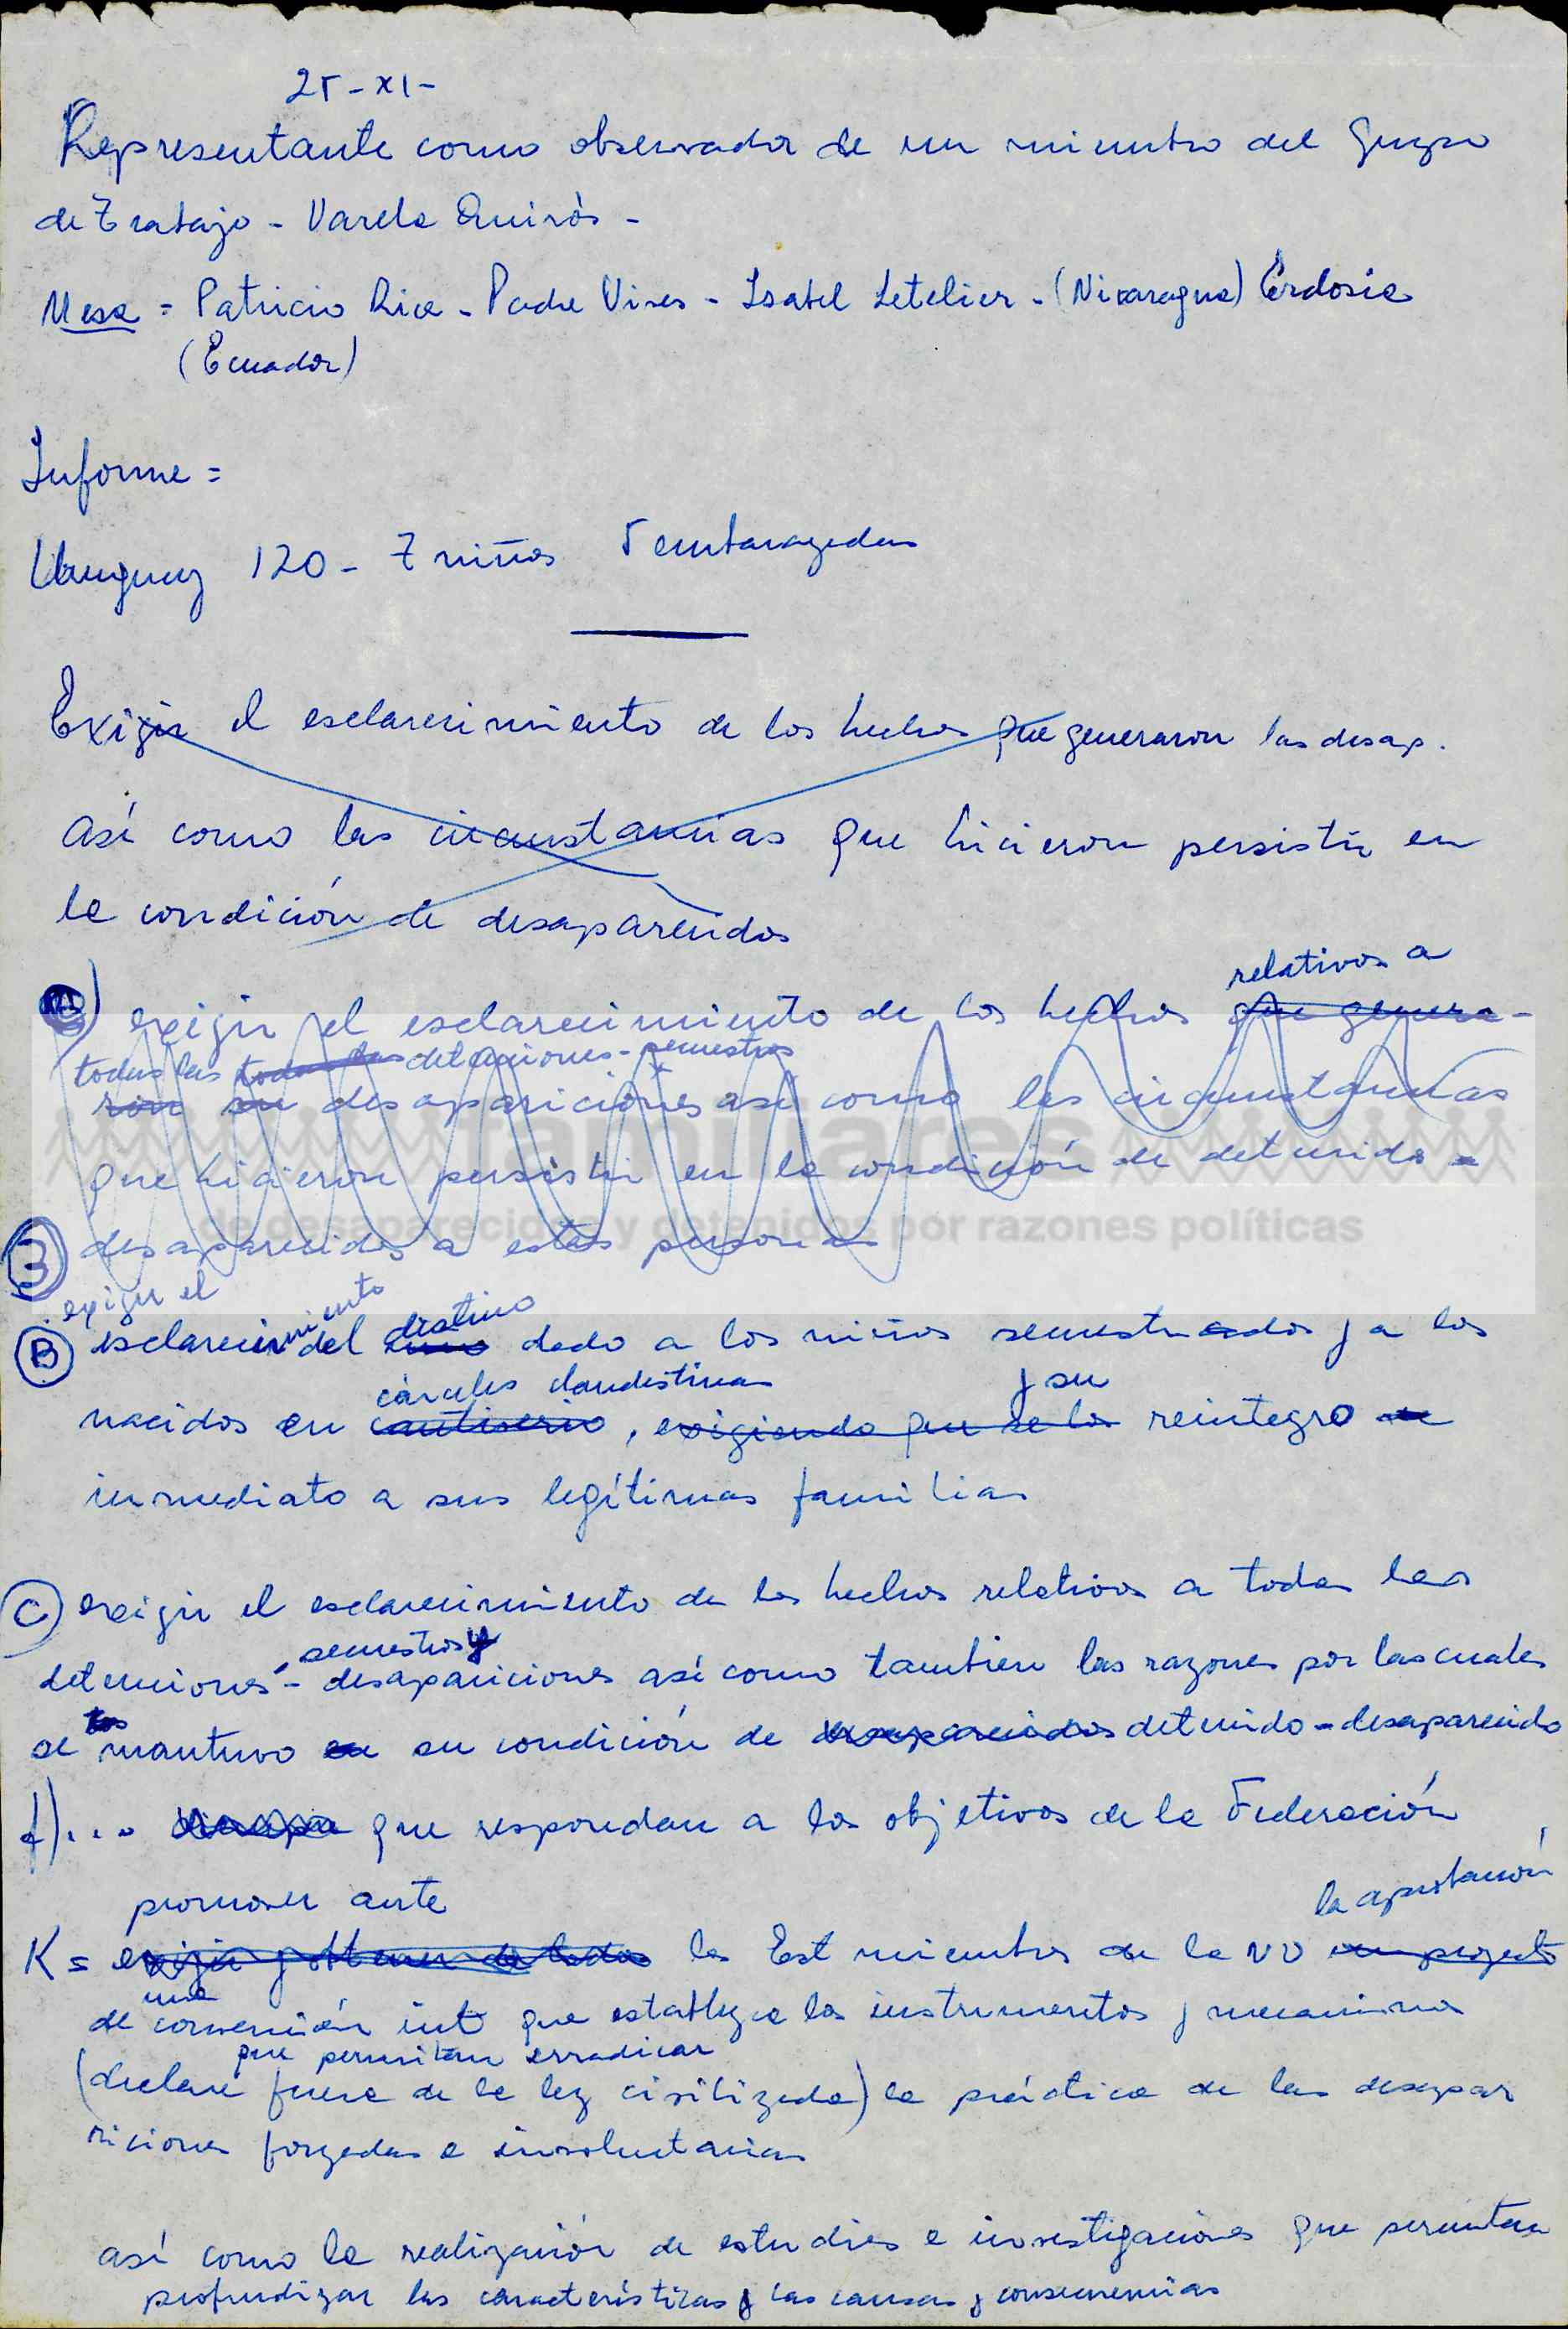 25-XI-
Representante como observador de un miembro del Grupo
de Trabajo - Varela Quirós -
Mesa = Patricio Rice - Padre Vives - Isabel Letelier - (Nicaragua) Erdosia
(Ecuador)
Informe =
Uruguay 120 - 7 niños 5 embarazadas
Exigir el esclarecimiento de los hechos que generaron las desap.
así como las circunstancias que hicieron persistir en
la condición de desaparecidos
relativos a
exigir el esclarecimiento de los hechos que genera-
todas las todas las detenciones - secuestros
ron su desapariciones así como las circunstancias
familiares
que hicieron persistir en la condición de detenido -
de desaparecidos y detenidos por razones políticas
3 desaparecidos a estas personas
exigir el
B esclarecimiento del destino dado a los niños secuestrados y a los
cárceles clandestinas y su
nacidos en cautiverio, exigiendo que se los reintegro de
inmediato a sus legítimas familias
C) exigir el esclarecimiento de los hechos relativos a todas las
secuestros y
detenciones - desapariciones así como también las razones por las cuales
se los mantuvo en su condición de desaparecidos detenido-desaparecido
f)... que respondan a los objetivos de la Federación
promover ante la aceptación
K = exigir y obtener de todos los Est miembros de la NU un proyecto
una
de convención int que establezca los instrumentos y mecanismos
que permitan erradicar
(declare fuera de la ley civilizada) la práctica de las desapar
riciones forzadas e involuntarias
así como la realización de estudios e investigaciones que permitan
profundizar las características y las causas y consecuencias